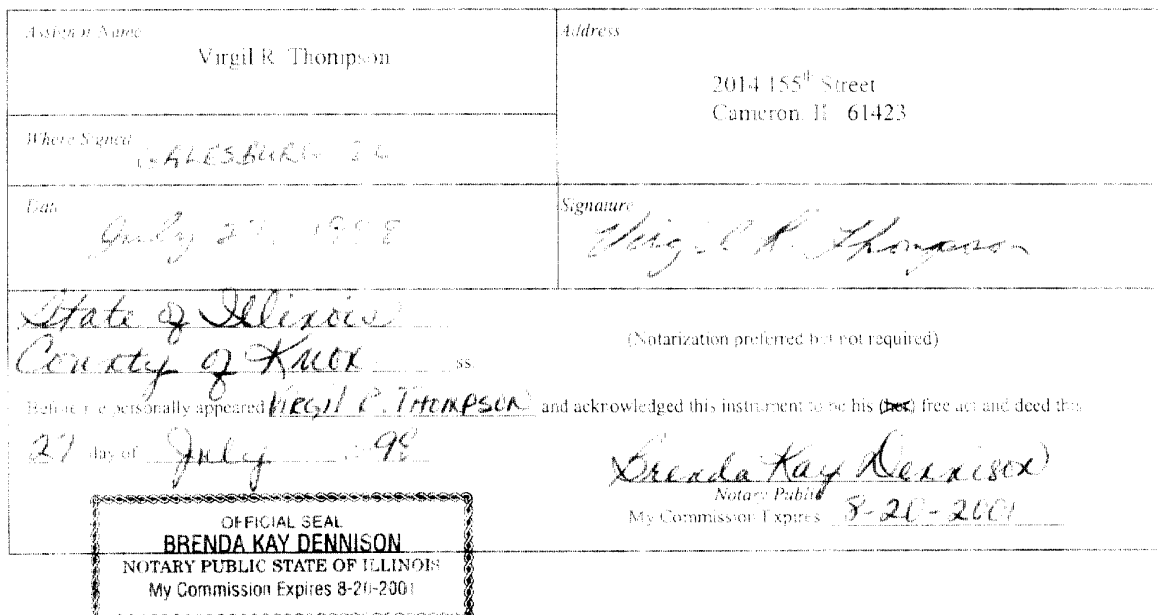 Assignor Name
Virgil R. Thompson
Address
2014 155th Street
Cameron, IL 61423
Where Signed
GALESBURG IL
Date
July 27, 1998
Signature
Virgil R. Thompson
State of Illinois
County of Knox ss.
(Notarization preferred but not required)
Before me personally appeared VIRGIL R. THOMPSON and acknowledged this instrument to be his (her) free act and deed this
27 day of July , 98
Brenda Kay Dennison
Notary Public
My Commission Expires 8-20-2001
OFFICIAL SEAL
BRENDA KAY DENNISON
NOTARY PUBLIC STATE OF ILLINOIS
My Commission Expires 8-20-2001